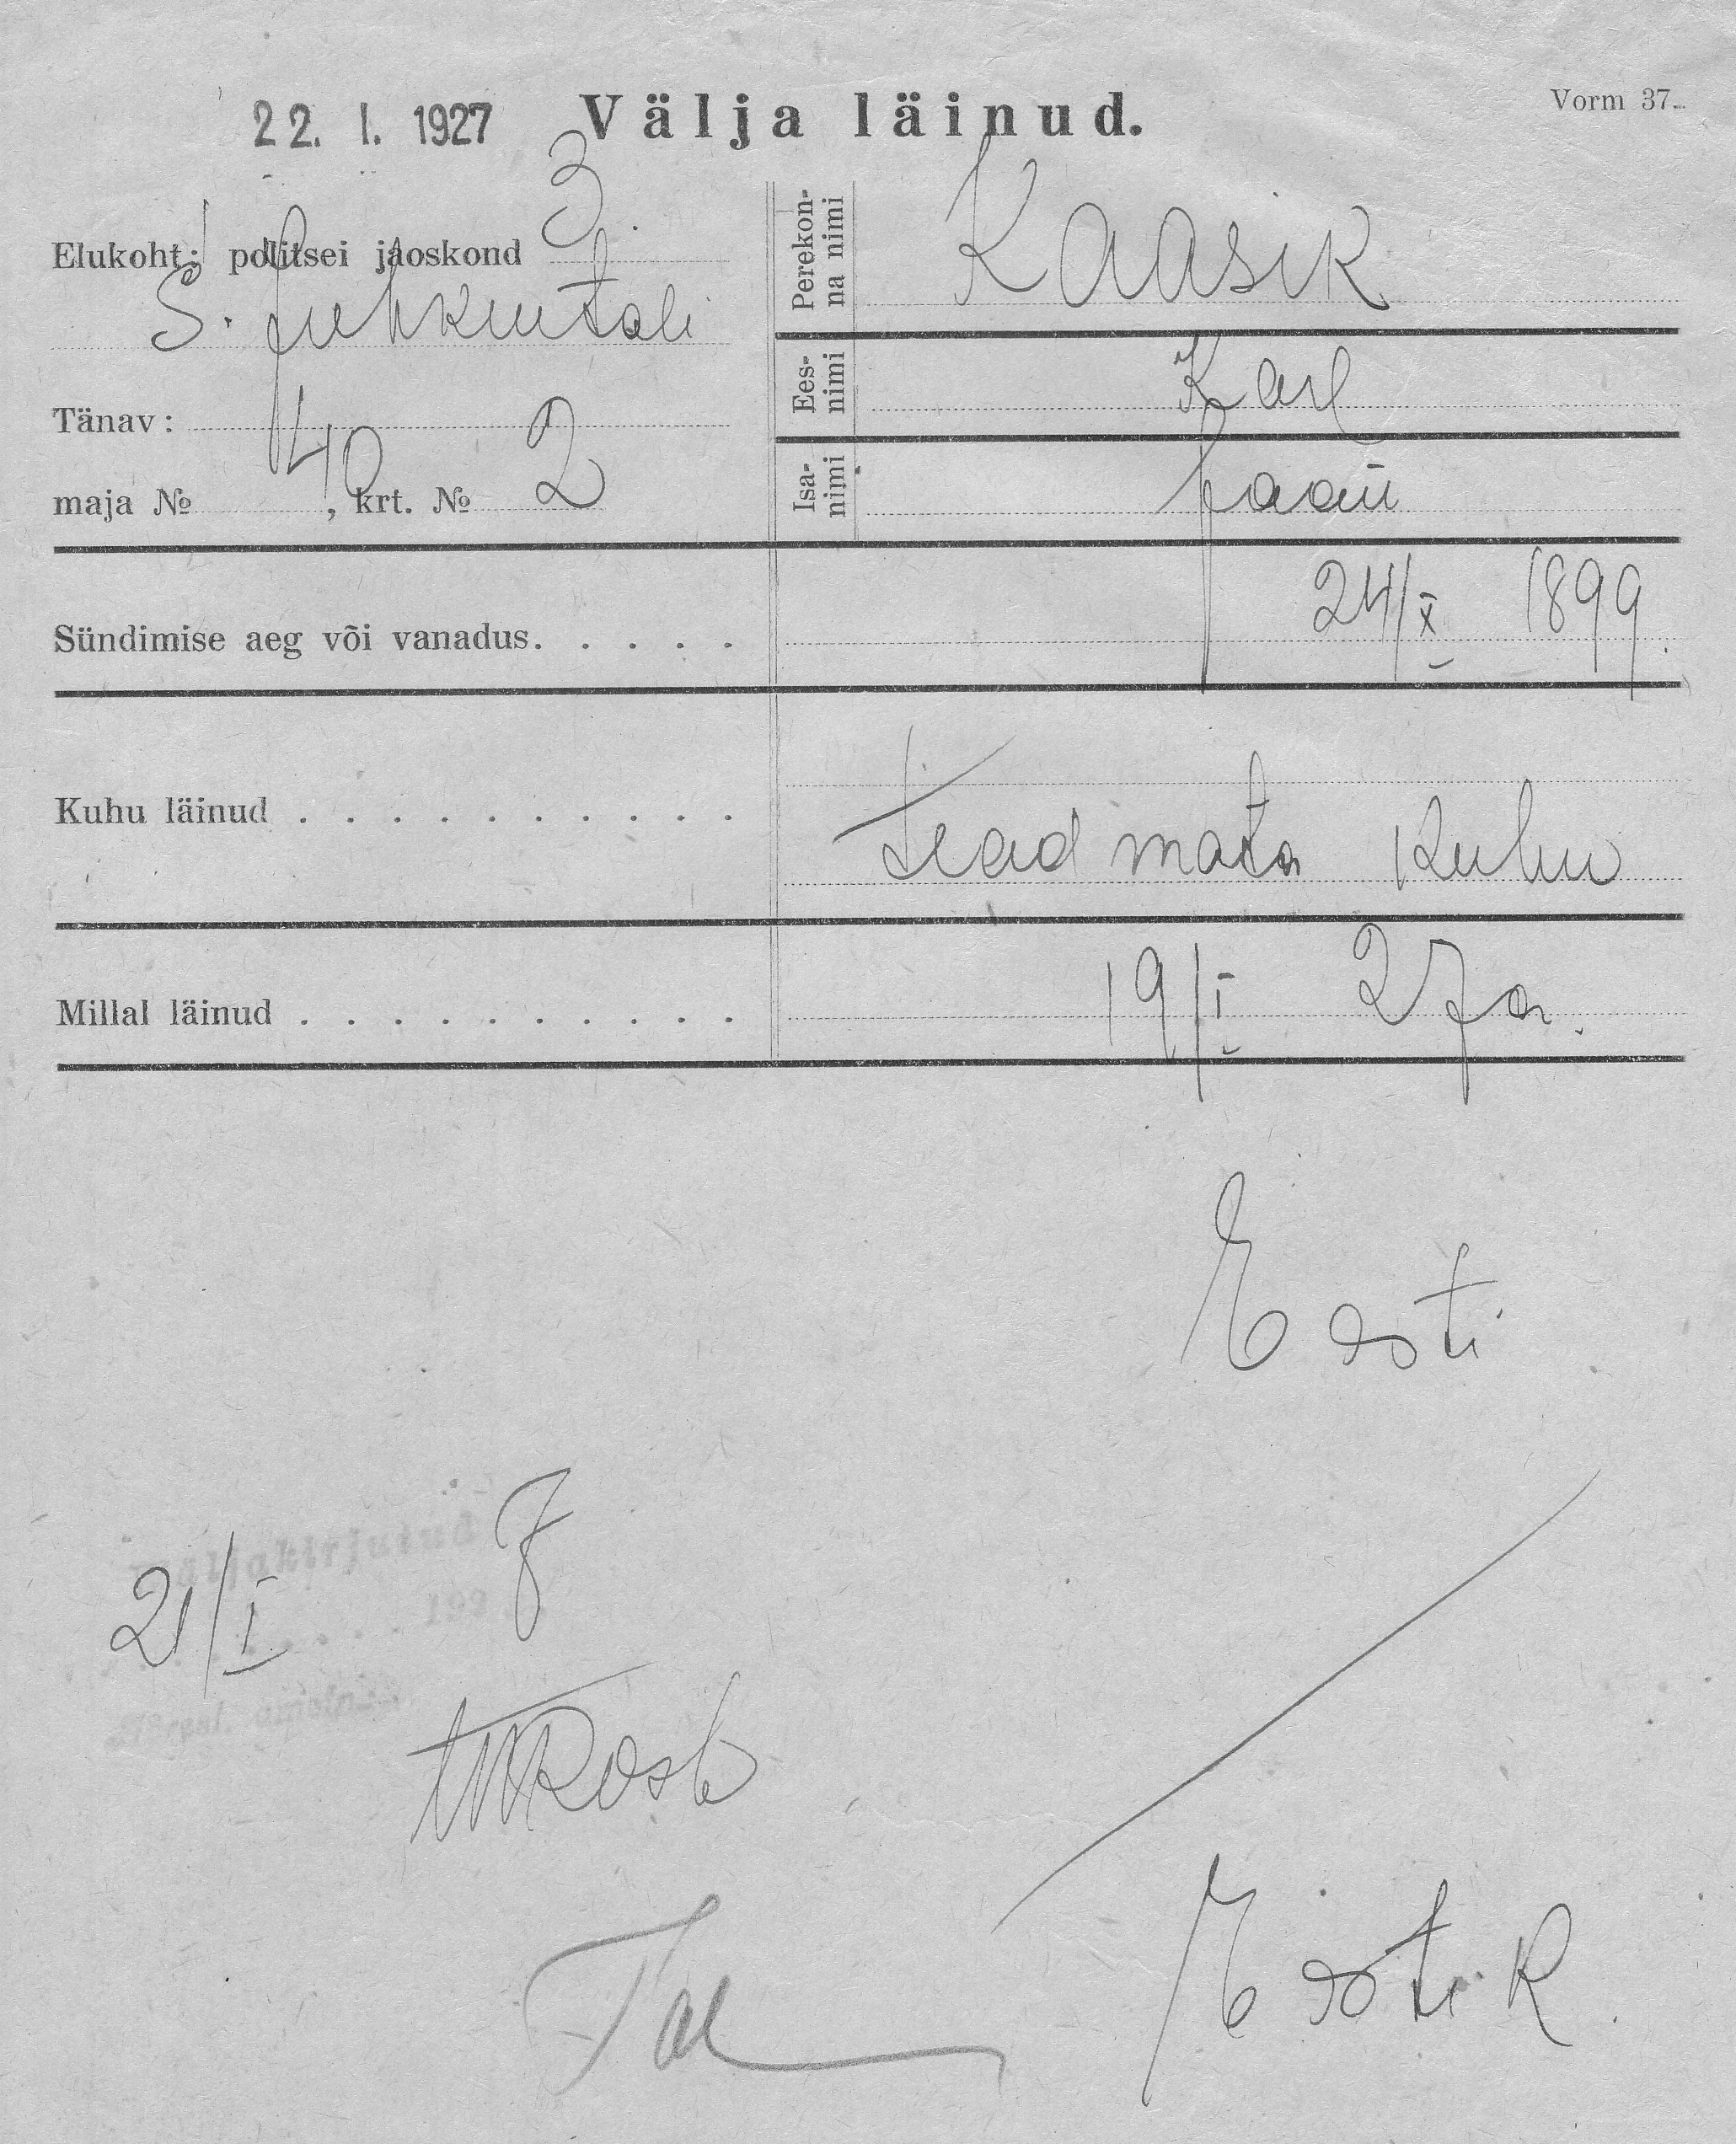 22. I. 1927 Välja läinud. Vorm 37.
Elukoht: politsei jaoskond 3.
S. Juhkentali
Tänav:
maja № 40, krt. № 2
Perekonna nimi Kaasik
Eesnimi Karl
Isanimi Jaan
Sündimise aeg või vanadus. . . . . 24/X 1899.
Kuhu läinud . . . . . . . . . . Teadmata kuhu
Millal läinud . . . . . . . . . . 19/I 27 a.
Eesti
Väljakirjutud
21/I 192 7
Eesti k.